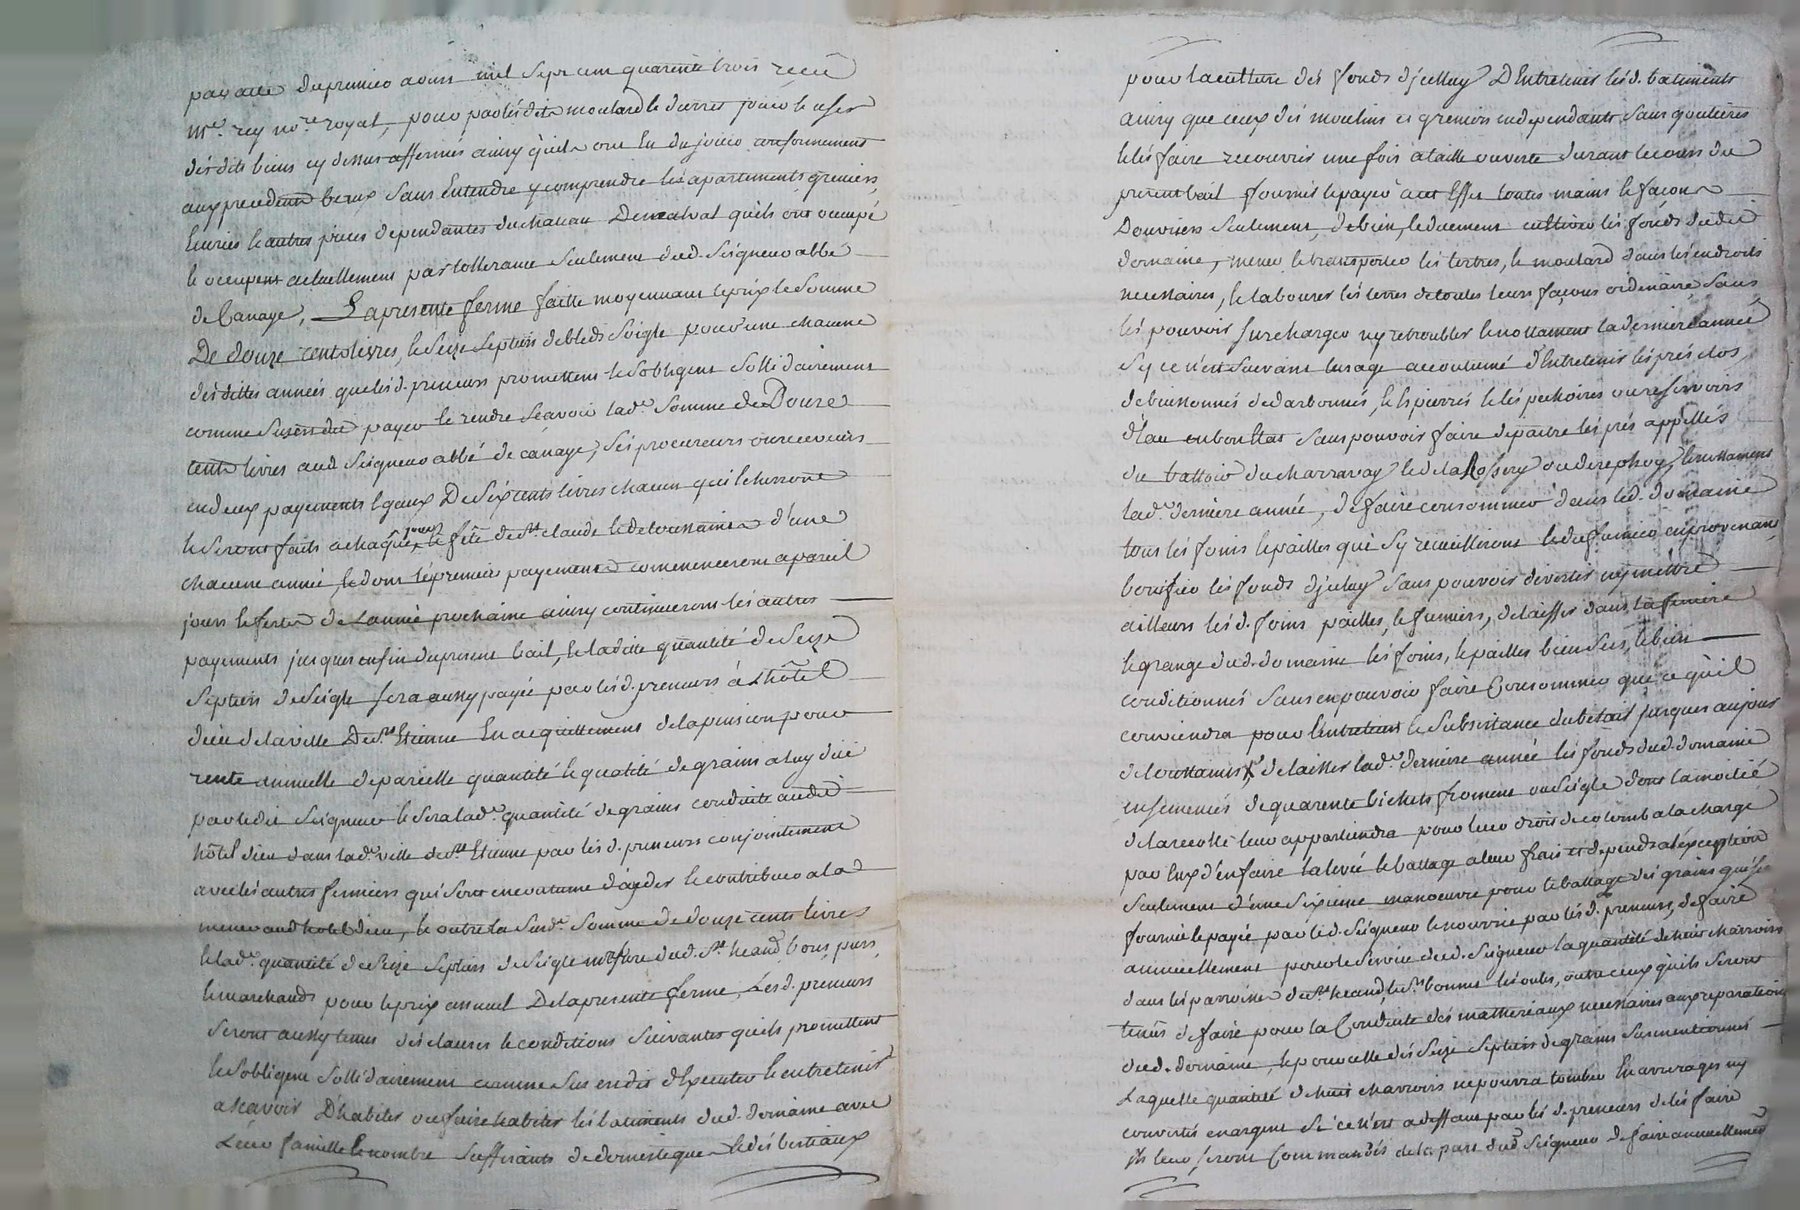 par acte du premier aoust mil sept cent quarente trois receu
Me. rey nore. royal, pour par lesdits moulard le durret jouir & user
desdits biens cy dessus affermés ainsy qu'ils ont eu du jouir conformement
aux precedents beaux sans Entendre y comprendre les apartements greniers,
Ecuries & autres pieces dependantes du chateau De malval qu'ils ont occupé
& occupent actuellement par tollerance seulement dud. Seigneur abbé
de Canaye, La presente ferme faitte moyennant le prix & somme
De douze cents livres, & seize septiers de bleds seigle pour une chacune
desdittes années que lesd. preneurs promettent & s'obligent sollidairement
comme sus est dit payer & rendre sçavoir lade. somme de Douze
cents livres aud. Seigneur abbé de canaye, ses procureurs ou receveurs
en deux payements Egaux De six cents livres chacun qui Echerront
& seront faits a chaque jour & fête de st. claude & de toussaints d'une
chacune année, & dont le premier payement commencera a pareil
jour & feste de L'année prochaine ainsy continueront les autres
payements jusques enfin du present bail, & la ditte quantité de Seize
Septiers de Seigle sera aussy payée par lesd. preneurs à L'hôtel
dieu de la ville De st. Etienne En acquittement de la pension pour
rente annuelle de pareille quantité & qualité de grains a luy düe
par ledit Seigneur & sera lade. quantité de grains conduite audit
hôtel dieu dans lade. ville de st. Etienne par lesd. preneurs conjointement
avec les autres fermiers qui sont en coutume d'ayder & contribuer a la
mener aud. hotel dieu, & outre la susde. somme de douze cents livres
& lade. quantité de seize septiers de seigle mesure dud. st. heand bons, purs,
& marchands pour le prix annuel De la presente ferme, Lesd. preneurs
seront aussy tenus des clauses & conditions suivantes qu'ils promettent
& s'obligent sollidairement comme sus en dit d'Executer & entretenir
a sçavoir D'habiter ou faire habiter les batiments dud. domaine avec
Leur famille & nombre suffisants de domestiques & des bestiaux
pour la culture des fonds d'jcelluy D'Entretenir lesd. batiments
ainsy que ceux des moulins et greniers independants sans goutieres
& les faire recouvrir une fois a taille ouverte durant le cours du
present bail fournir & payer a cet Effet toutes mains & façons
D'ouvriers seulement, de bien, & duement cultiver les fonds dudit
domaine, mener & transporter les tertres, & moulard dans les endroits
necessaires, & labourer les terres de toutes leurs façons ordinaire, sans
les pouvoir surcharger ny retroubler & nottament la derniere année
Sy ce n'est suivant l'usage accoutumé d'Entretenir les prés clos,
debuissonnés dedarbonnés, & Epierrés & les pechoires ou reservoirs
d'eau en bon Etat sans pouvoir faire depaitre les prés appellés
du battoir du charravay & de la Rossery ou derephoy, & nottament
lade. derniere année, de faire consommer dans led. domaine
tous les foins & pailles qui s'y recueilliront & du fumier en provenant,
bonifier les fonds d'jceluy sans pouvoir divertir ny mettre
ailleurs lesd. foins pailles, & fumiers, de laisser dans la feniere
& grange dud. domaine les foins, & pailles bien secs, & bien
conditionnés sans en pouvoir faire Consommer que ce qu'il
conviendra pour l'entretient & subsistance du betail jusques au jour
de toussaints, de laisser lade. derniere année les fonds dud. domaine
ensemencés de quarente bichets froment ou seigle dont la moitié
de la recolte leur appartiendra pour leur droit de colomb a la charge
par Eux d'en faire la levée & battage a leur frais et depends a l'exception
seulement d'une sixieme manoeuvre pour le battage des grains qui sera
fournie & payée par led. Seigneur & nourrie par lesd. preneurs, de faire
annuellement pour le service dud. Seigneur la quantité de huit charroirs
dans les parroisses de st. heand, & st. bonnet les oules, outre ceux qu'ils seront
tenus de faire pour la Conduite des matheriaux necessaires aux reparations
dud. domaine, & pour celle des Seize septiers de grains susmentionnés
Laquelle quantité de huit charroirs ne pourra tomber En arrerages ny
convertis en argent si ce n'est a deffaut par lesd. preneurs de les faire
Ils leur seront Commandés de la part dud. Seigneur de faire annuellement